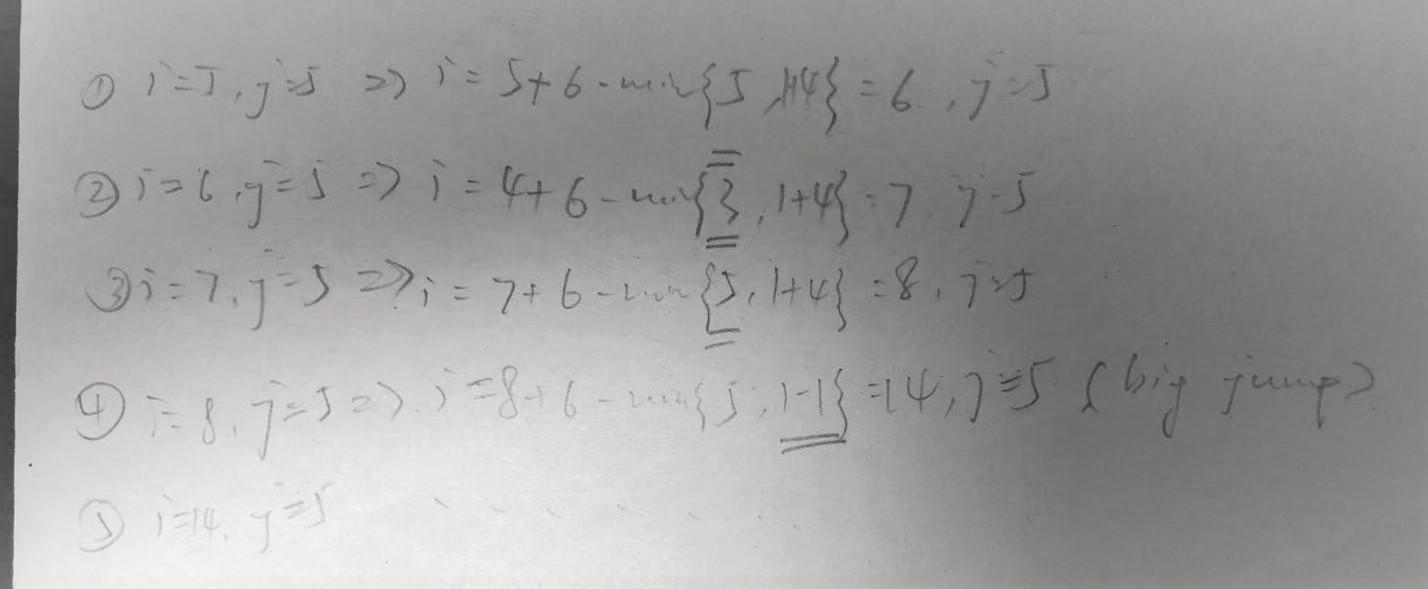 ① i=5, j=5 => i = 5+6-min{5, 1+4} = 6, j=5
② i=6, j=5 => i = 4+6-min{3, 1+4} = 7 j=5
③ i=7, j=5 => i = 7+6-min{5, 1+4} = 8, j=5
④ i=8, j=5 => i=8+6-min{5, 1-1} =14, j=5 (big jump)
⑤ i=14, j=5 . . . . . . .